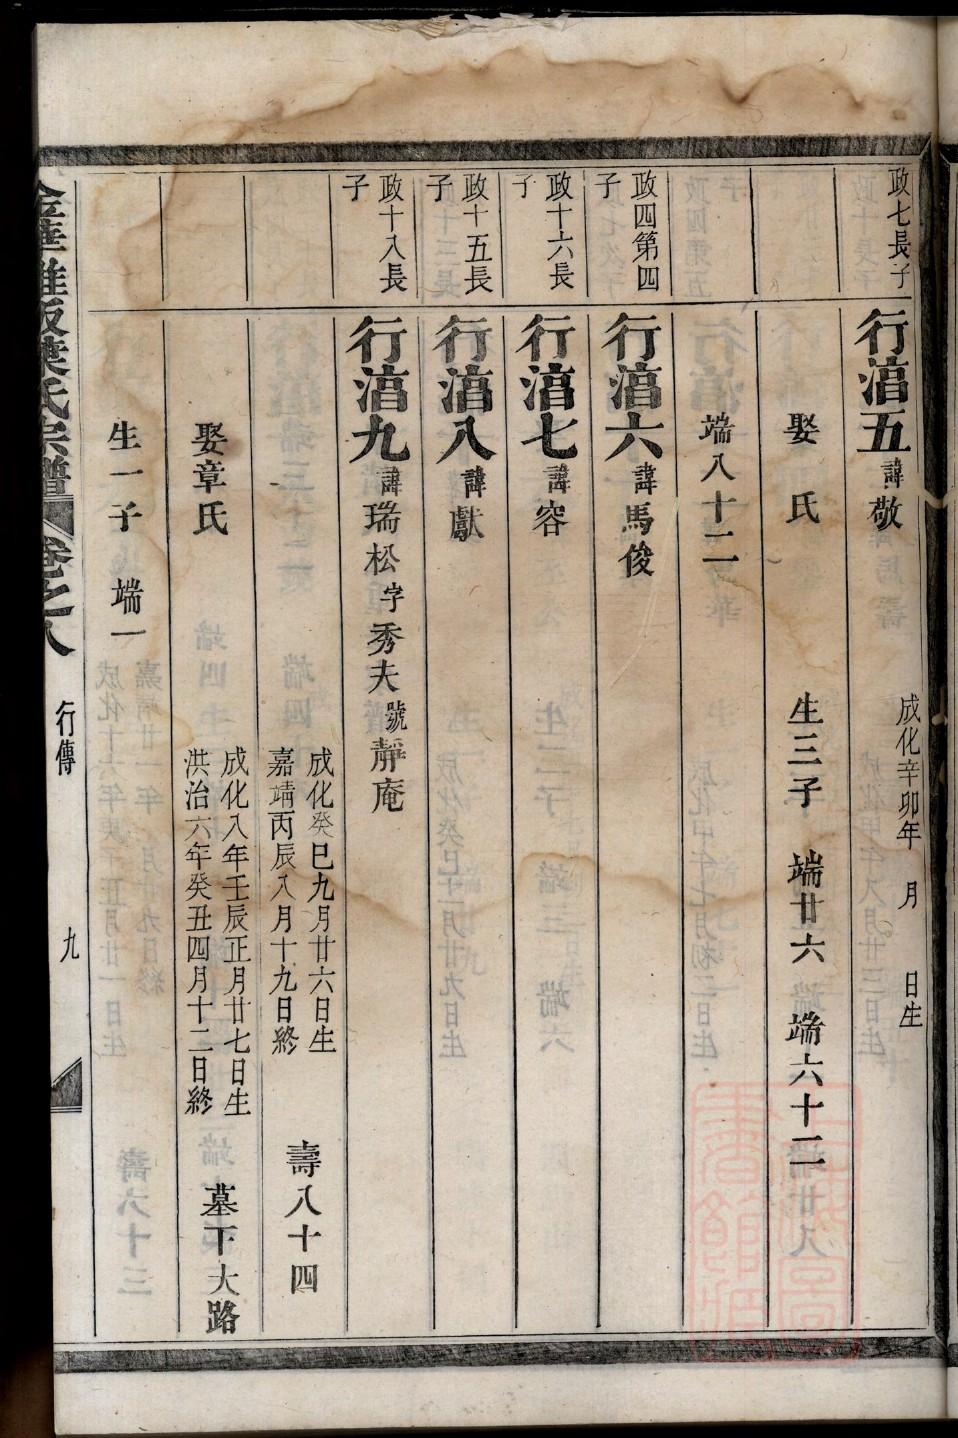 政七長子
行湻五 諱敬
成化辛卯年 月 日生
娶 氏 生三子 端廿六 端六十二
端八十二
政四第四子
行湻六 諱馬俊
政十六長子
行湻七 諱容
政十五長子
行湻八 諱獻
政十八長子
行湻九 諱瑞松 字秀夫 號靜庵
成化癸巳九月廿六日生
嘉靖丙辰八月十九日終
壽八十四
娶章氏
成化八年壬辰正月廿七日生
洪治六年癸丑四月十二日終
墓下大路
生一子 端一
葉氏宗譜 卷之八 行傳 九